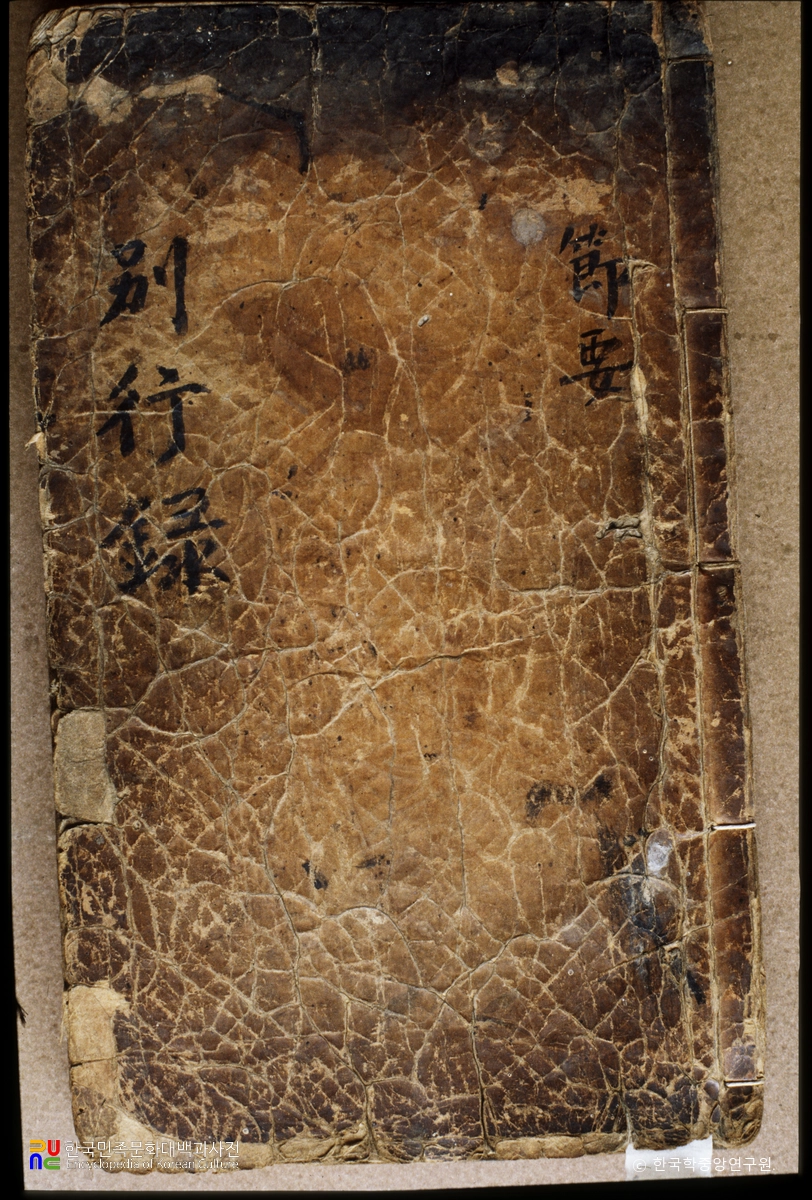 節要
別行録
한국민족문화대백과사전
Encyclopedia of Korean Culture
© 한국학중앙연구원